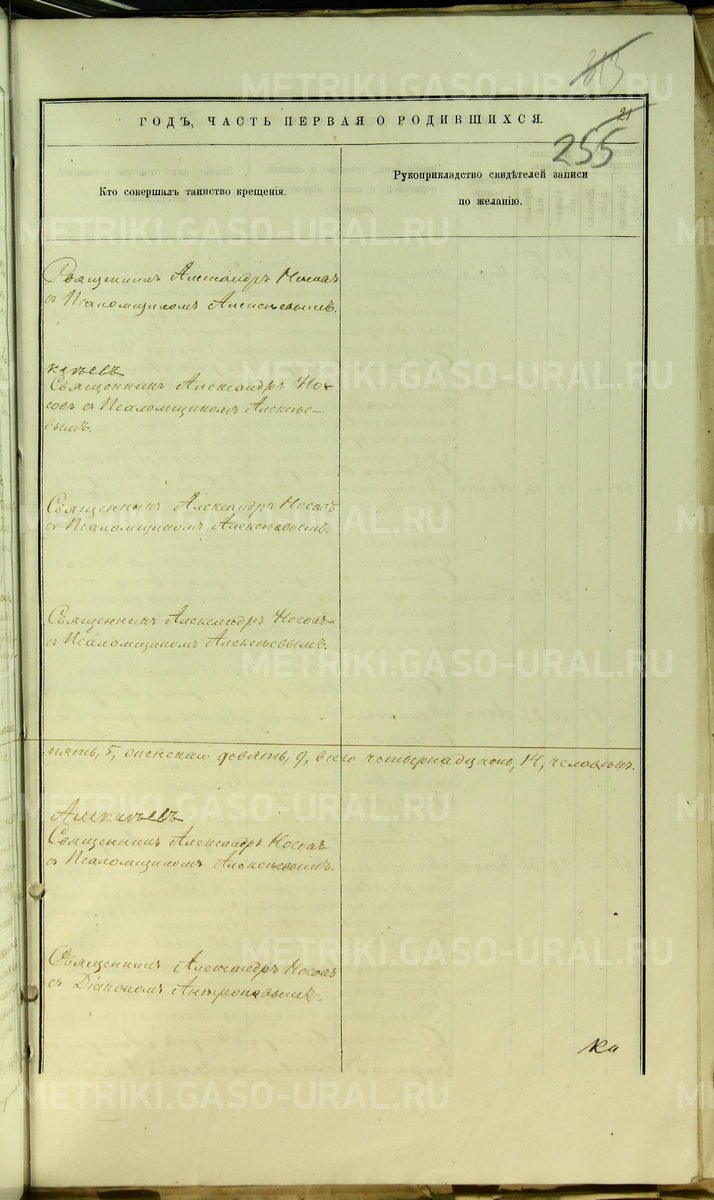 313
ГОДЪ, ЧАСТЬ ПЕРВАЯ О РОДИВШИХСЯ.
21
255
Кто совершалъ таинство крещенія.
Рукоприкладство свидѣтелей записи
по желанію.
Священникъ Александръ Носовъ
съ Псаломщикомъ Алексѣевымъ.
Священникъ Александръ Но-
совъ съ Псаломщикомъ Алексѣе-
вымъ.
Священникъ Александръ Носовъ
съ Псаломщикомъ Алексѣевымъ.
Священникъ Александръ Носовъ
съ Псаломщикомъ Алексѣевымъ.
пять, 5, женскаго девять, 9, всего четырнадцать, 14, человѣкъ.
Священникъ Александръ Носовъ
съ Псаломщикомъ Алексѣевымъ.
Священникъ Александръ Носовъ
съ Діакономъ Антроповымъ.
METRIKI.GASO-URAL.RU